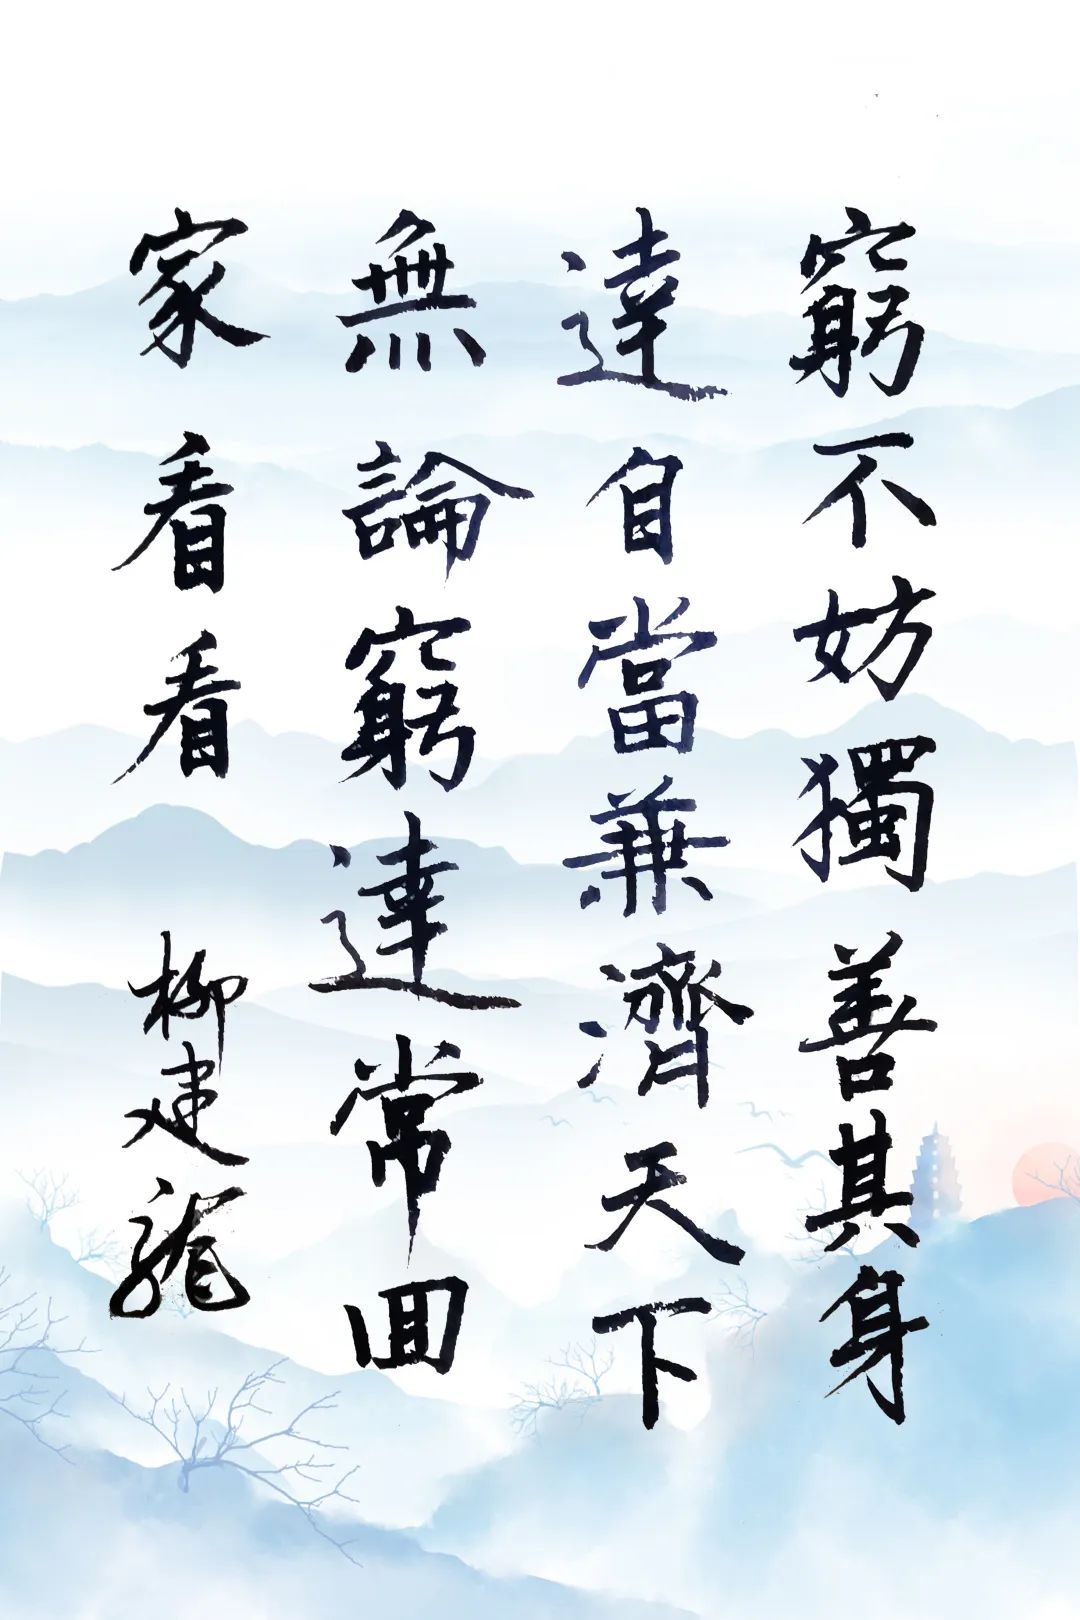 窮不妨獨善其身
達自當兼濟天下
無論窮達常回
家看看
柳建龍